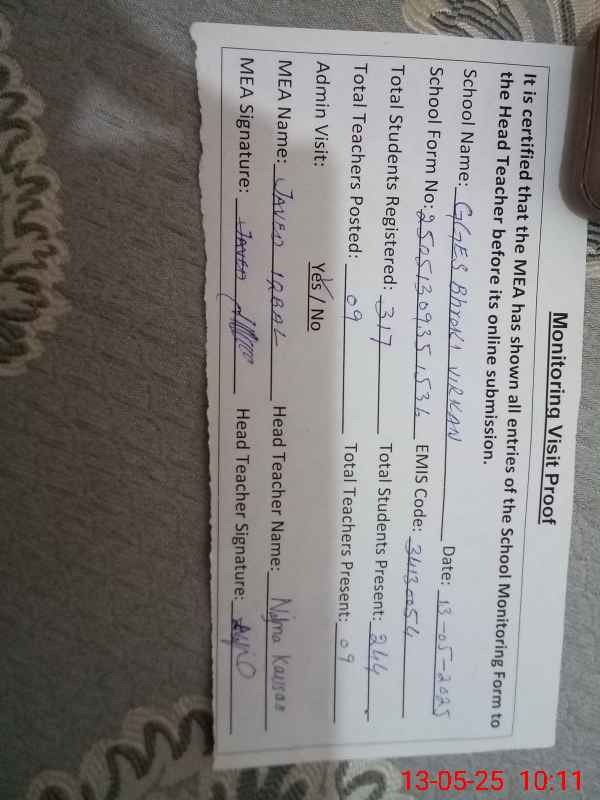 Monitoring Visit Proof
It is certified that the MEA has shown all entries of the School Monitoring Form to
the Head Teacher before its online submission.
School Name: GGES Bhroki VIRKAN Date: 13-05-2025
School Form No: EMIS Code: 34130054
Total Students Registered: 317 Total Students Present: 244
Total Teachers Posted: 09 Total Teachers Present: 09
Admin Visit: Yes / No
MEA Name: JAVED IQBAL Head Teacher Name: Najma Kausar
MEA Signature: JAVED Head Teacher Signature:
13-05-25 10:11